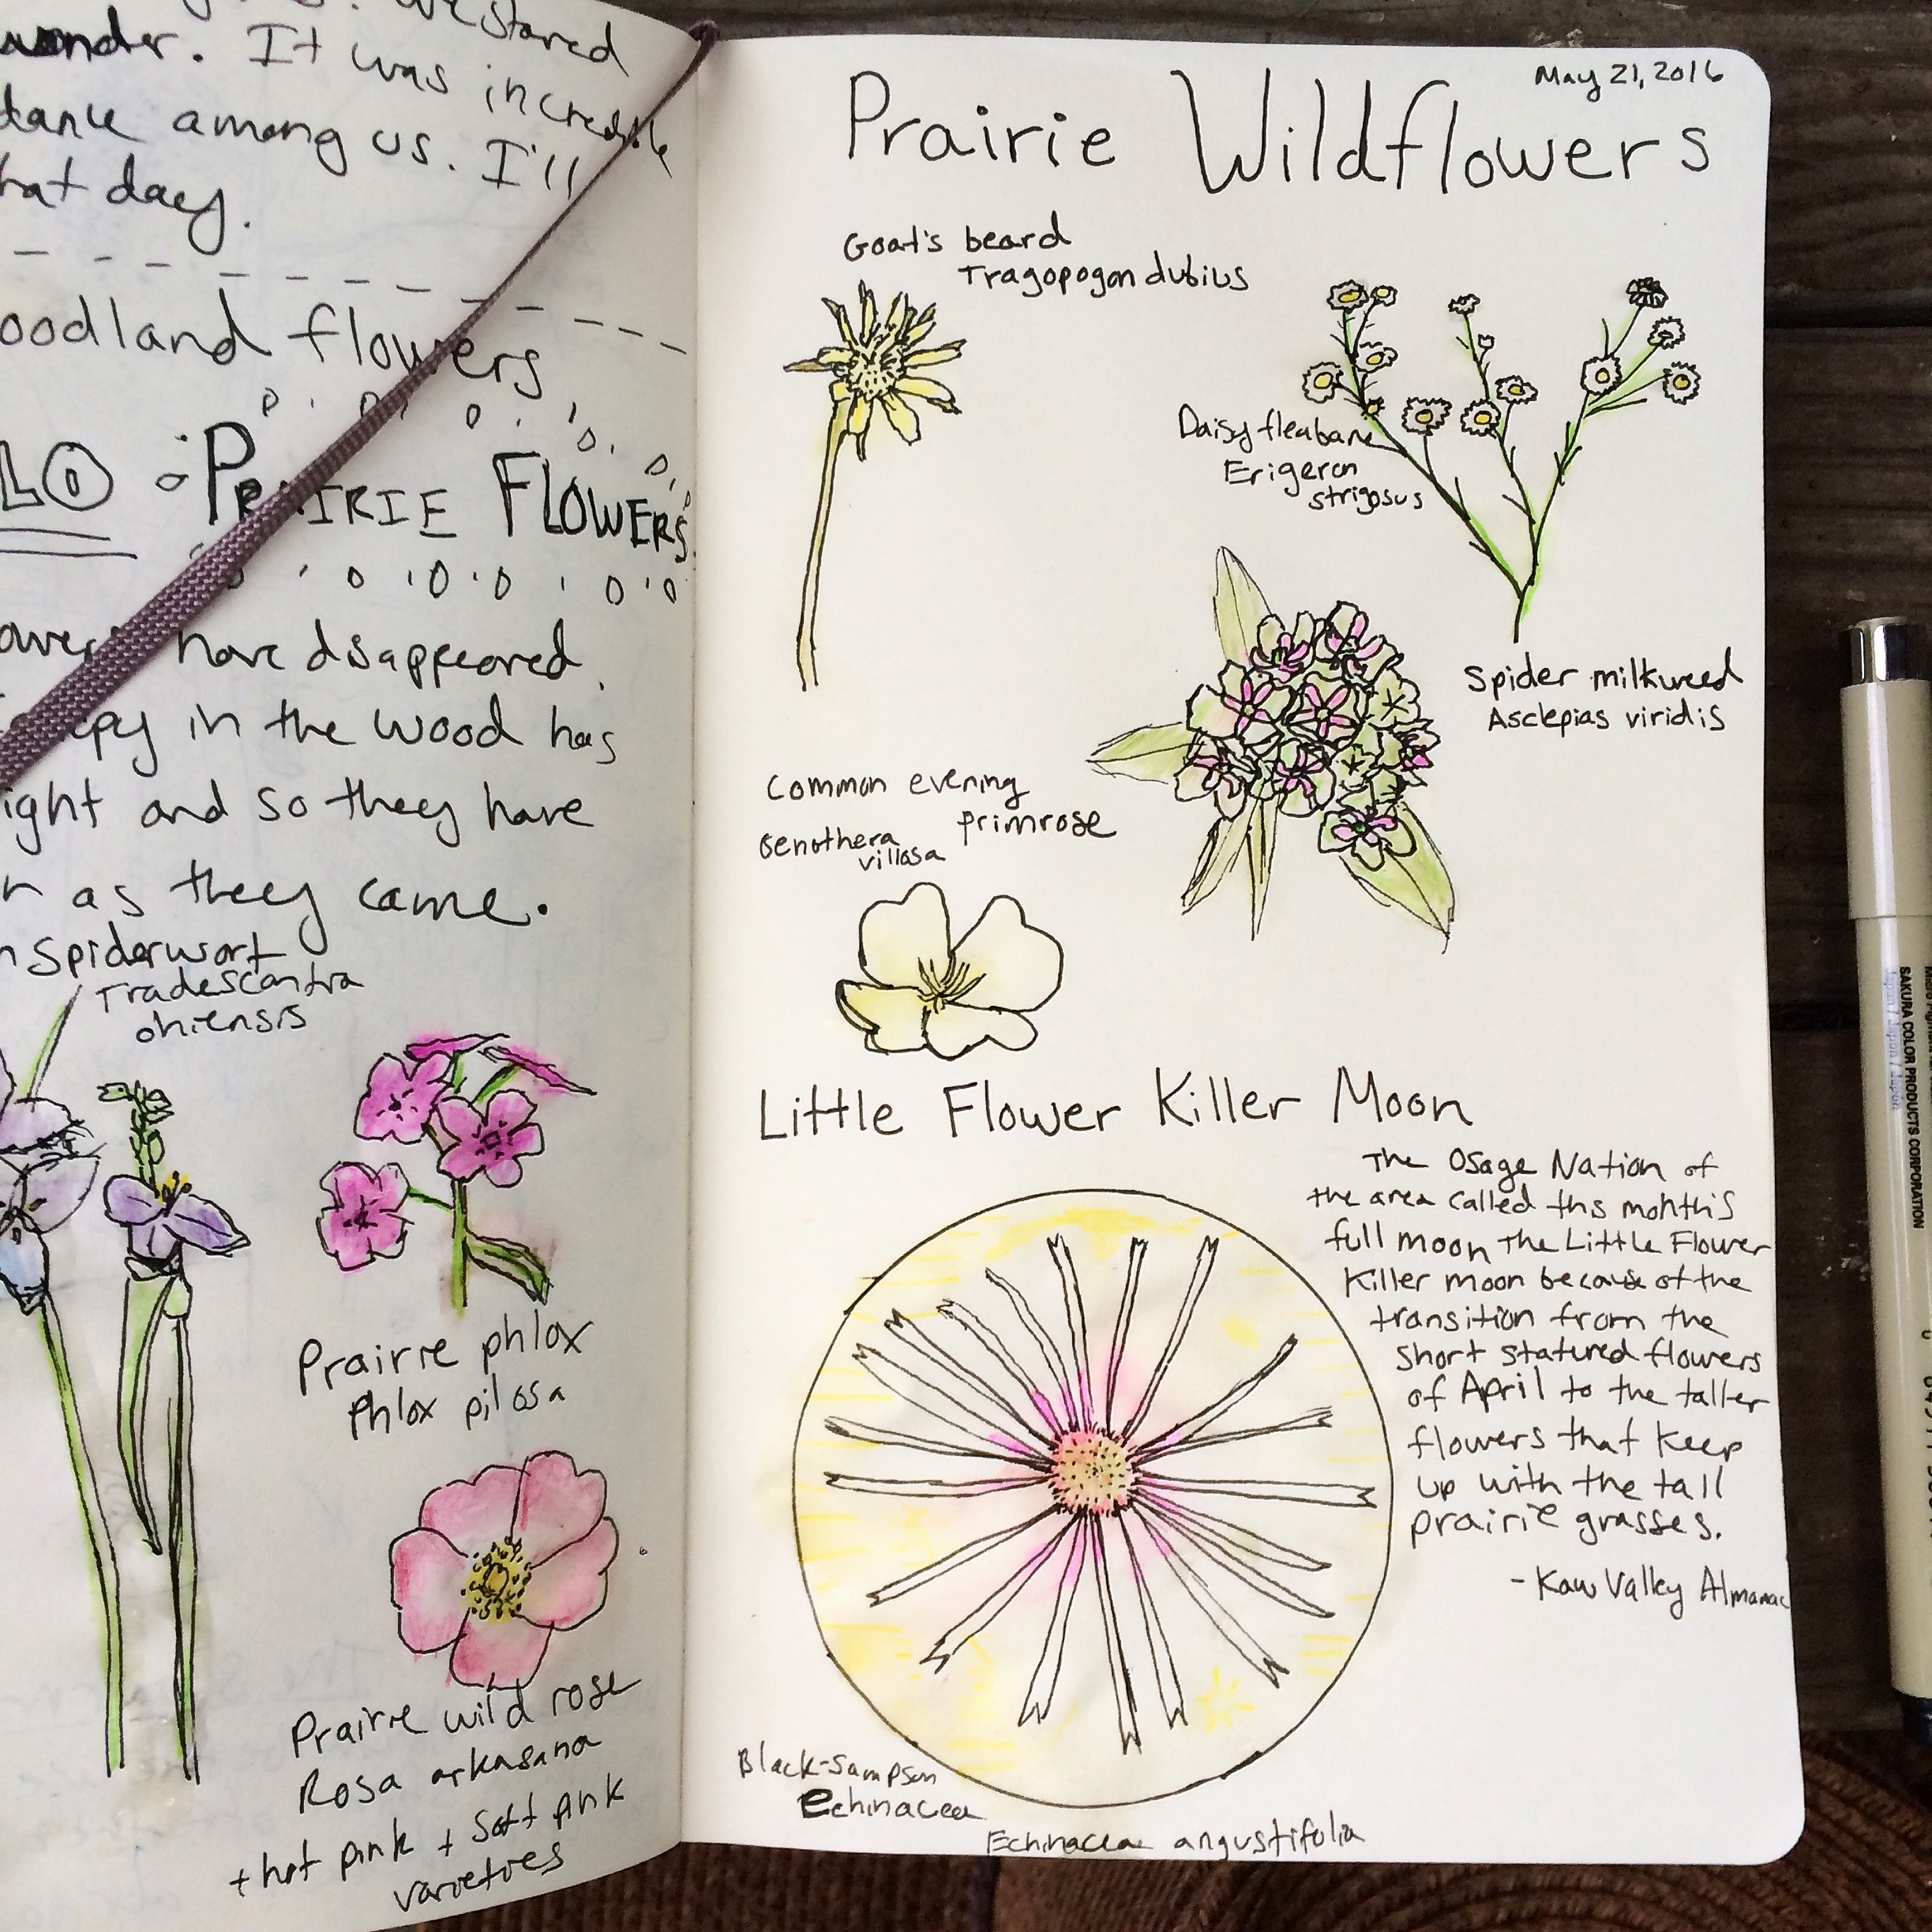 We stared
wonder. It was incredible
among us. I'll
that day.
flowers
LO PRAIRIE FLOWERS
have disappeared.
in the wood has
and so they have
as they came.
Spiderwort
Tradescantia
ohiensis
Prairie phlox
Phlox pilosa
Prairie wild rose
Rosa arkasana
+ hot pink + soft pink
varieties
May 21, 2016
Prairie Wildflowers
Goat's beard
Tragopogon dubius
Daisy fleabane
Erigeron
strigosus
Spider milkweed
Asclepias viridis
Common evening
primrose
Oenothera
villosa
Little Flower Killer Moon
The Osage Nation of
the area called this month's
full moon The Little Flower
Killer moon because of the
transition from the
short statured flowers
of April to the taller
flowers that keep
up with the tall
prairie grasses.
- Kaw Valley Almanac
Black-Sampson
echinacea
Echinacea angustifolia
SAKURA COLOR PRODUCTS CORPORATION
Japan / Japon